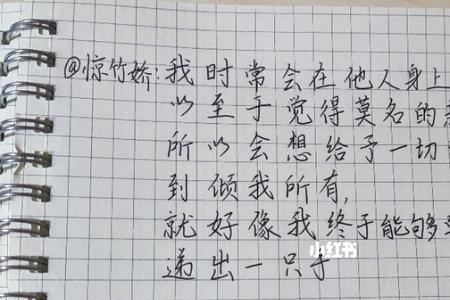 @惊竹娇:我时常会在他人身上
以至于觉得莫名的
所以会想给予一切
到倾我所有,
就好像我终于能够
递出一只手
小红书